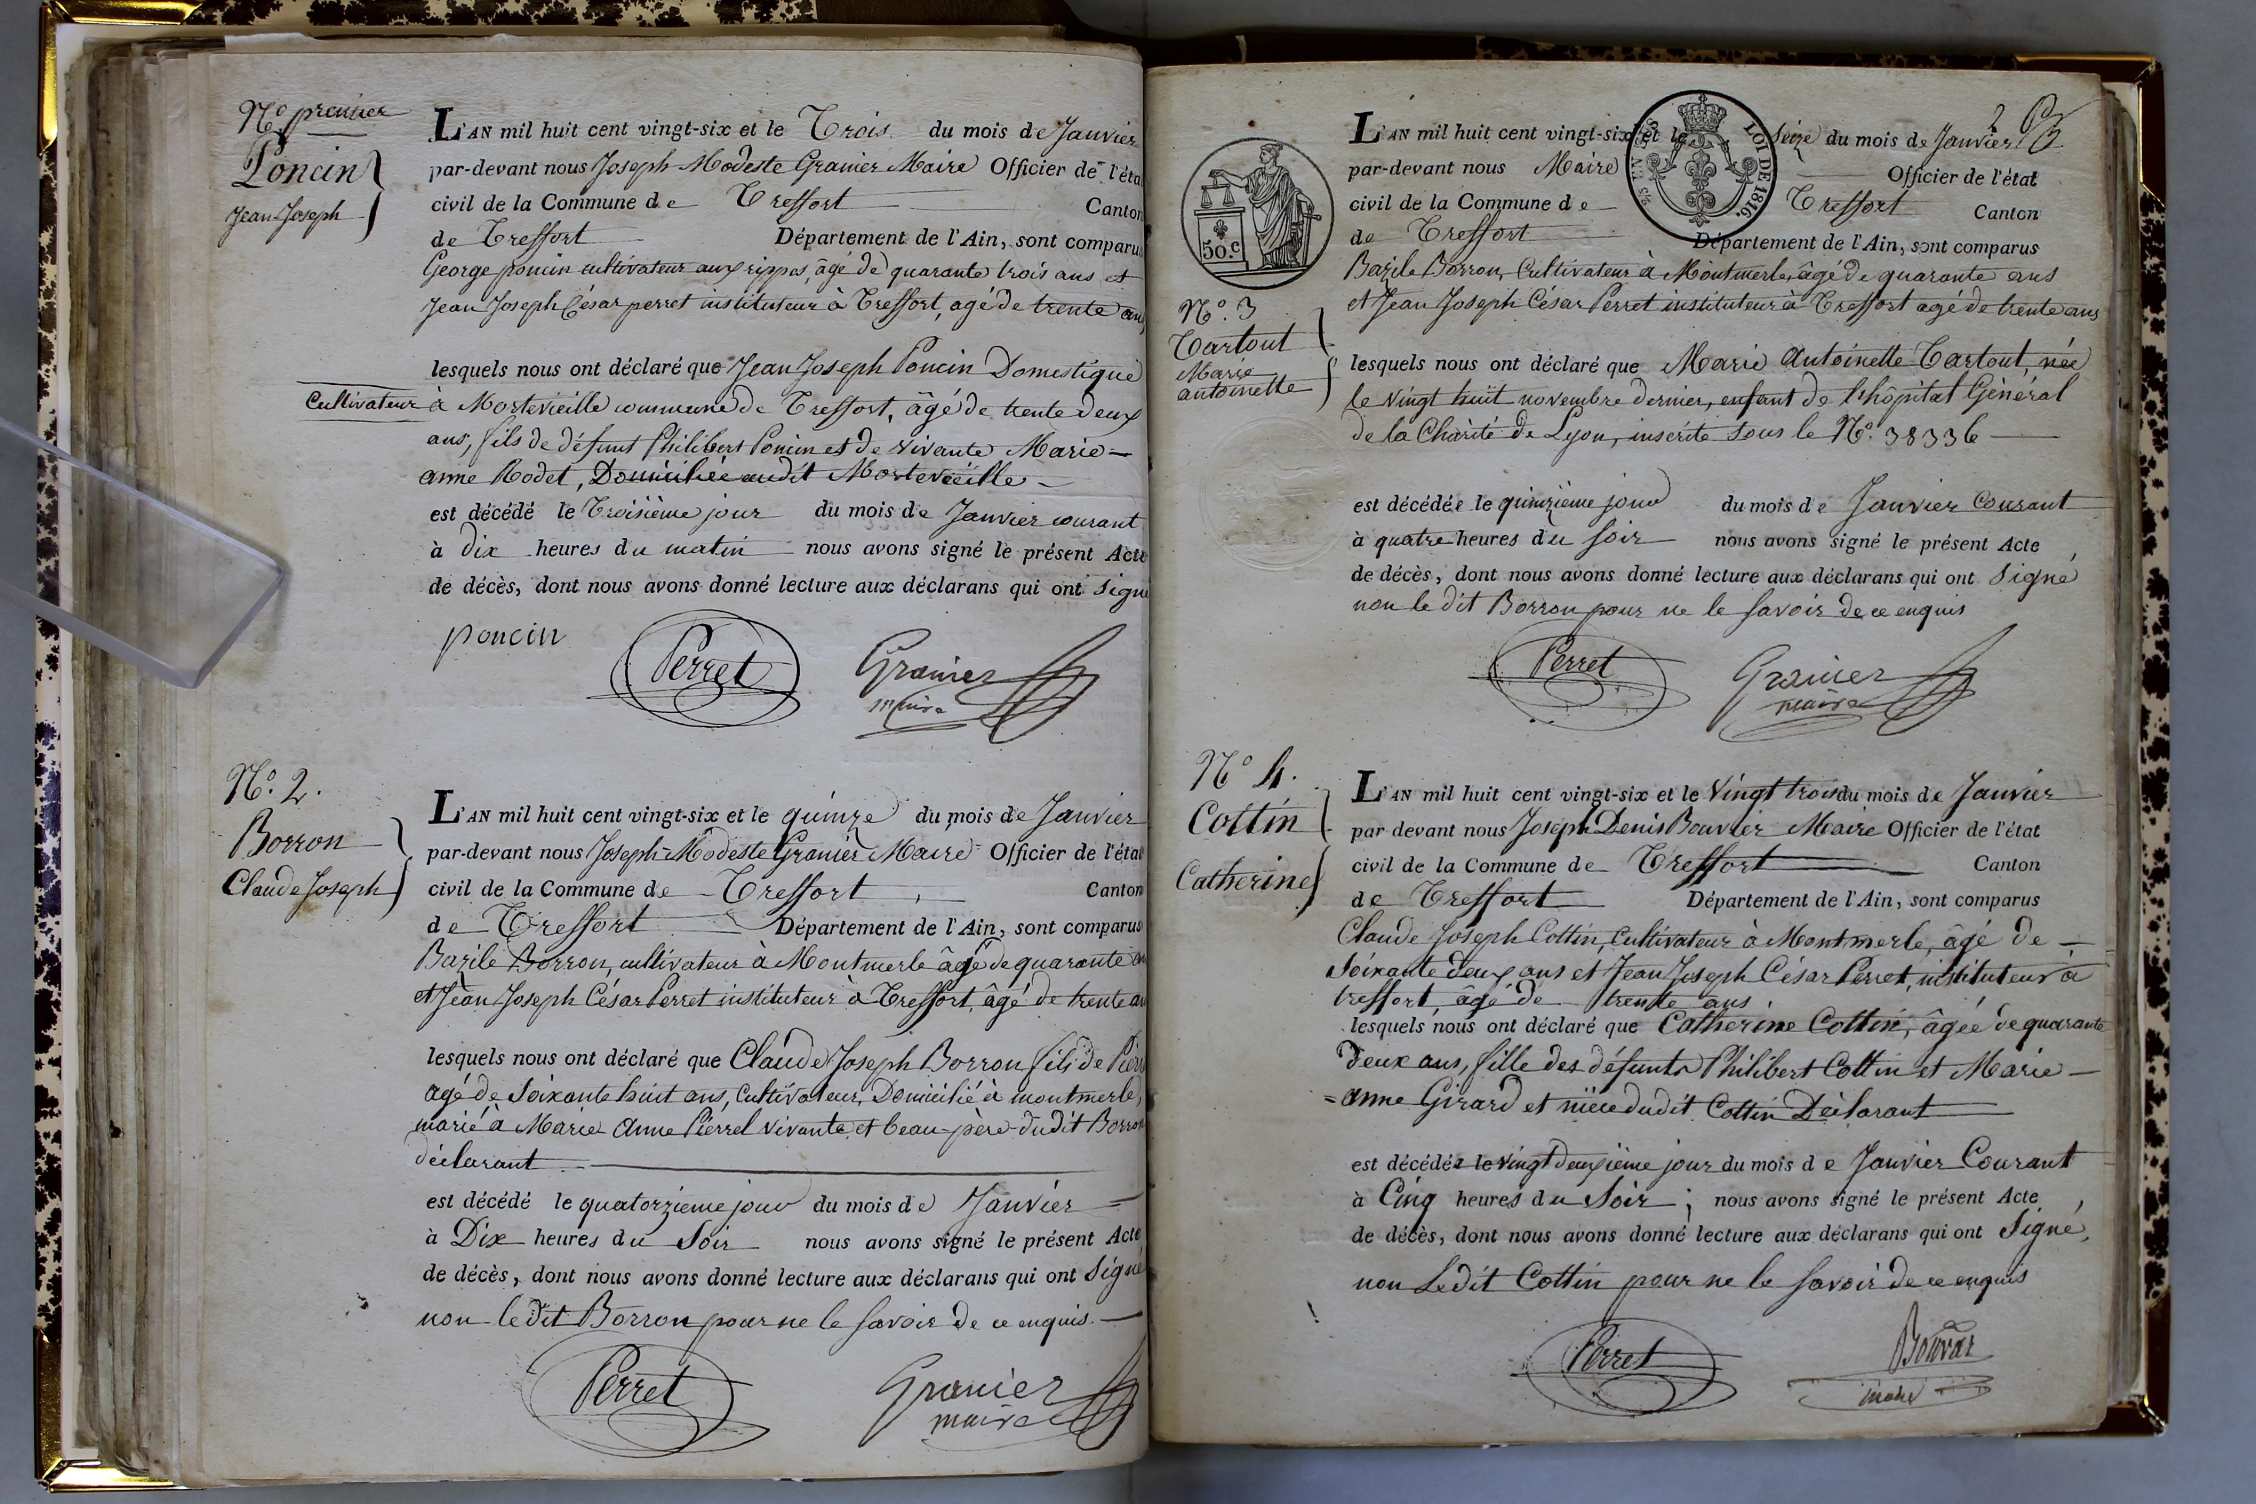 N.o premier
Poncin
Jean Joseph
L'AN mil huit cent vingt-six et le Trois du mois de Janvier
par-devant nous Joseph Modeste Granier Maire Officier de l'éta
civil de la Commune de Treffort Canton
de Treffort Département de l'Ain, sont comparus
George poncin cultivateur aux rippes, âgé de quarante trois ans et
Jean Joseph César perret instituteur à Treffort, agé de trente ans
lesquels nous ont déclaré que Jean Joseph Poncin Domestique
Cultivateur à Mortevieille commune de Treffort, âgé de trente deux
ans, fils de défunt Philibert Poncin et de vivante Marie-
anne Rodet, Domiciliée audit Mortevieille
est décédé le Troisième jour du mois de Janvier courant
à dix heures du matin nous avons signé le présent Acte
de décès, dont nous avons donné lecture aux déclarans qui ont signé
poncin Perret Granier
maire
N.o 2.
Borron
Claude Joseph
L'AN mil huit cent vingt-six et le quinze du mois de Janvier
par-devant nous Joseph-Modeste Granier Maire Officier de l'état
civil de la Commune de Treffort, Canton
de Treffort Département de l'Ain, sont comparus
Bazile Borron, cultivateur à Montmerle âgé de quarante an
et Jean Joseph César Perret instituteur à Treffort, âgé de trente an
lesquels nous ont déclaré que Claude Joseph Borron fils de Pierre
agé de Soixante huit ans, Cultivateur, Domicilié à montmerle,
marié à Marie Anne Pierrel vivante et beau-père dudit Borron
déclarant
est décédé le quatorzième jour du mois de Janvier
à Dix heures du Soir nous avons signé le présent Acte
de décès, dont nous avons donné lecture aux déclarans qui ont Signé
non le dit Borron pour ne le savoir de ce enquis.
Perret Granier
maire
2
50.c
LOI DE 1816.
N.o 3
Tartout
Marie
antoinette
L'AN mil huit cent vingt-six et le Seize du mois de Janvier
par-devant nous Maire Officier de l'état
civil de la Commune de Treffort Canton
de Treffort Département de l'Ain, sont comparus
Bazile Borron, Cultivateur à Montmerle, âgé de quarante ans
et Jean Joseph César Perret instituteur à Treffort agé de trente ans
lesquels nous ont déclaré que Marie Antoinette Tartout, née
le vingt huit novembre dernier, enfant de l'hôpital Général
de la Charité de Lyon, inscrite sous le N.o 38336
est décédée le quinzième jour du mois de Janvier Courant
à quatre heures du Soir nous avons signé le présent Acte
de décès, dont nous avons donné lecture aux déclarans qui ont Signé
non le dit Borron pour ne le savoir de ce enquis
Perret Granier
maire
N.o 4.
Cottin
Catherine
L'AN mil huit cent vingt-six et le Vingt trois du mois de Janvier
par devant nous Joseph Denis Bouvier Maire Officier de l'état
civil de la Commune de Treffort Canton
de Treffort Département de l'Ain, sont comparus
Claude Joseph Cottin, Cultivateur à Montmerle, âgé de
Soixante deux ans et Jean Joseph César Perret, instituteur à
treffort, âgé de trente ans
lesquels nous ont déclaré que Catherine Cottin, âgée de quarante
deux ans, fille des défunts Philibert Cottin et Marie
=anne Girard et nièce dudit Cottin Déclarant
est décédée le vingt deuxième jour du mois de Janvier Courant
à Cinq heures du Soir; nous avons signé le présent Acte
de décès, dont nous avons donné lecture aux déclarans qui ont Signé,
non Ledit Cottin pour ne le savoir de ce enquis
Perret Bouvier
maire